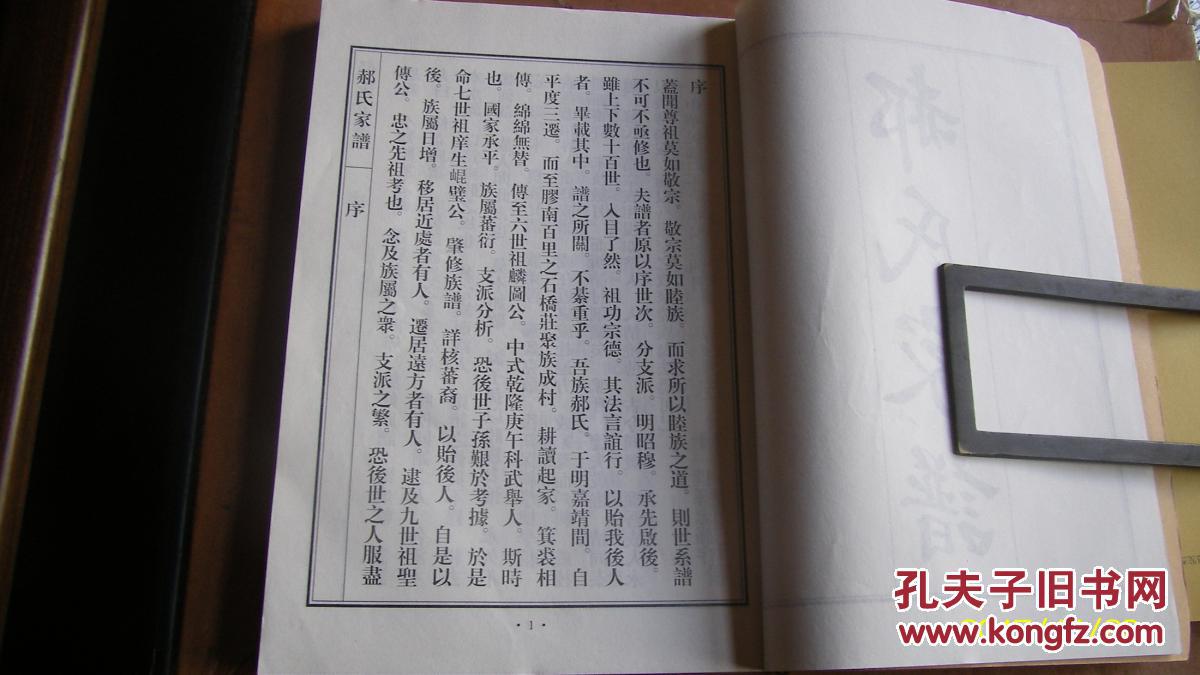 序
蓋聞尊祖莫如敬宗。敬宗莫如睦族。而求所以睦族之道。則世系譜
不可不亟修也。夫譜者原以序世次。分支派。明昭穆。承先啟後。
雖上下數十百世。入目了然。祖功宗德。其法言誼行。以貽我後人
者。畢載其中。譜之所關。不綦重乎。吾族郝氏。于明嘉靖間。自
平度三遷。而至膠南百里之石橋莊聚族成村。耕讀起家。箕裘相
傳。綿綿無替。傳至六世祖麟圖公。中式乾隆庚午科武舉人。斯時
也。國家承平。族屬蕃衍。支派分析。恐後世子孫艱於考據。於是
命七世祖庠生崐璧公。肇修族譜。詳核蕃裔。以貽後人。自是以
後。族屬日增。移居近處者有人。遷居遠方者有人。逮及九世祖聖
傳公。忠之先祖考也。念及族屬之衆。支派之繁。恐後世之人服盡
郝氏家譜
序
·1·
郝氏家譜
孔夫子旧书网
www.kongfz.com